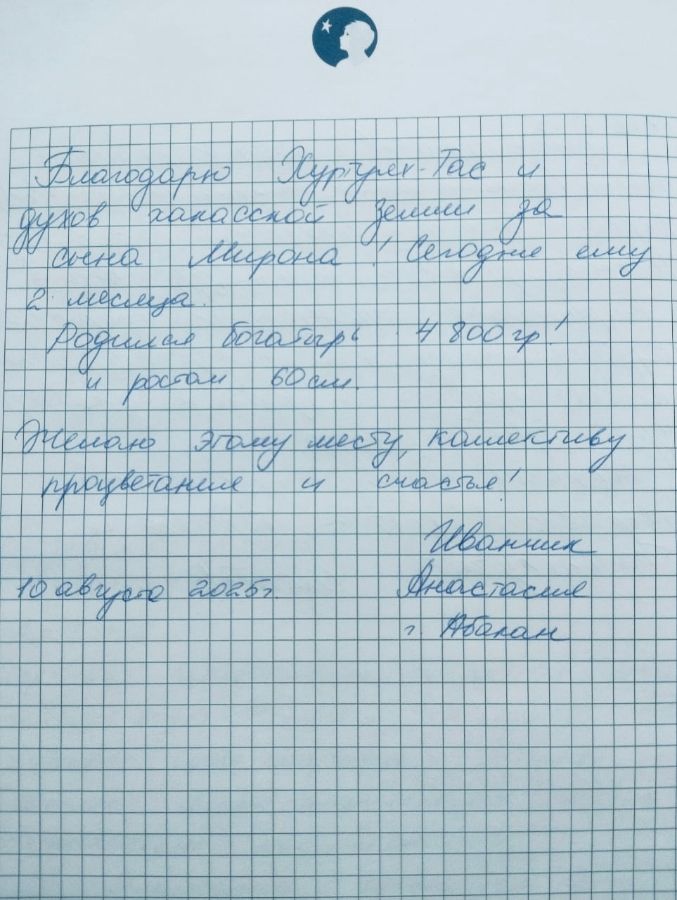 Благодарю Хуртуях-Тас и
духов хакасской земли за
сына Мирона! Сегодня ему
2 месяца.
Родился богатырь 4800гр!
и ростом 60см.
Желаю этому месту, коллективу
процветания и счастья!
Иванчик
10 августа 2025г
Анастасия
г. Абакан